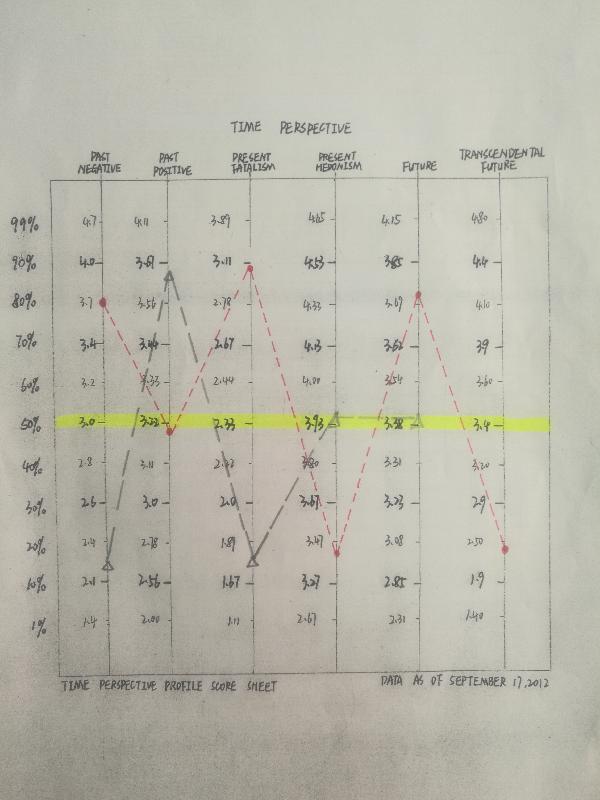 TIME PERSPECTIVE
PAST NEGATIVE
PAST POSITIVE
PRESENT FATALISM
PRESENT HEDONISM
FUTURE
TRANSCENDENTAL FUTURE
99% 4.7 4.11 3.89 4.65 4.15 4.80
90% 4.0 3.67 3.11 4.53 3.85 4.4
80% 3.7 3.56 2.78 4.33 3.69 4.10
70% 3.4 3.44 2.67 4.13 3.62 3.9
60% 3.2 3.33 2.44 4.00 3.54 3.60
50% 3.0 3.22 2.33 3.93 3.38 3.4
40% 2.8 3.11 3.80 3.31 3.20
30% 2.6 3.0 2.0 3.67 3.23 2.9
20% 2.4 2.78 1.89 3.47 3.08 2.50
10% 2.1 2.56 1.67 3.27 2.85 1.9
1% 1.4 2.00 1.11 2.67 2.31 1.40
TIME PERSPECTIVE PROFILE SCORE SHEET
DATA AS OF SEPTEMBER 17,2012